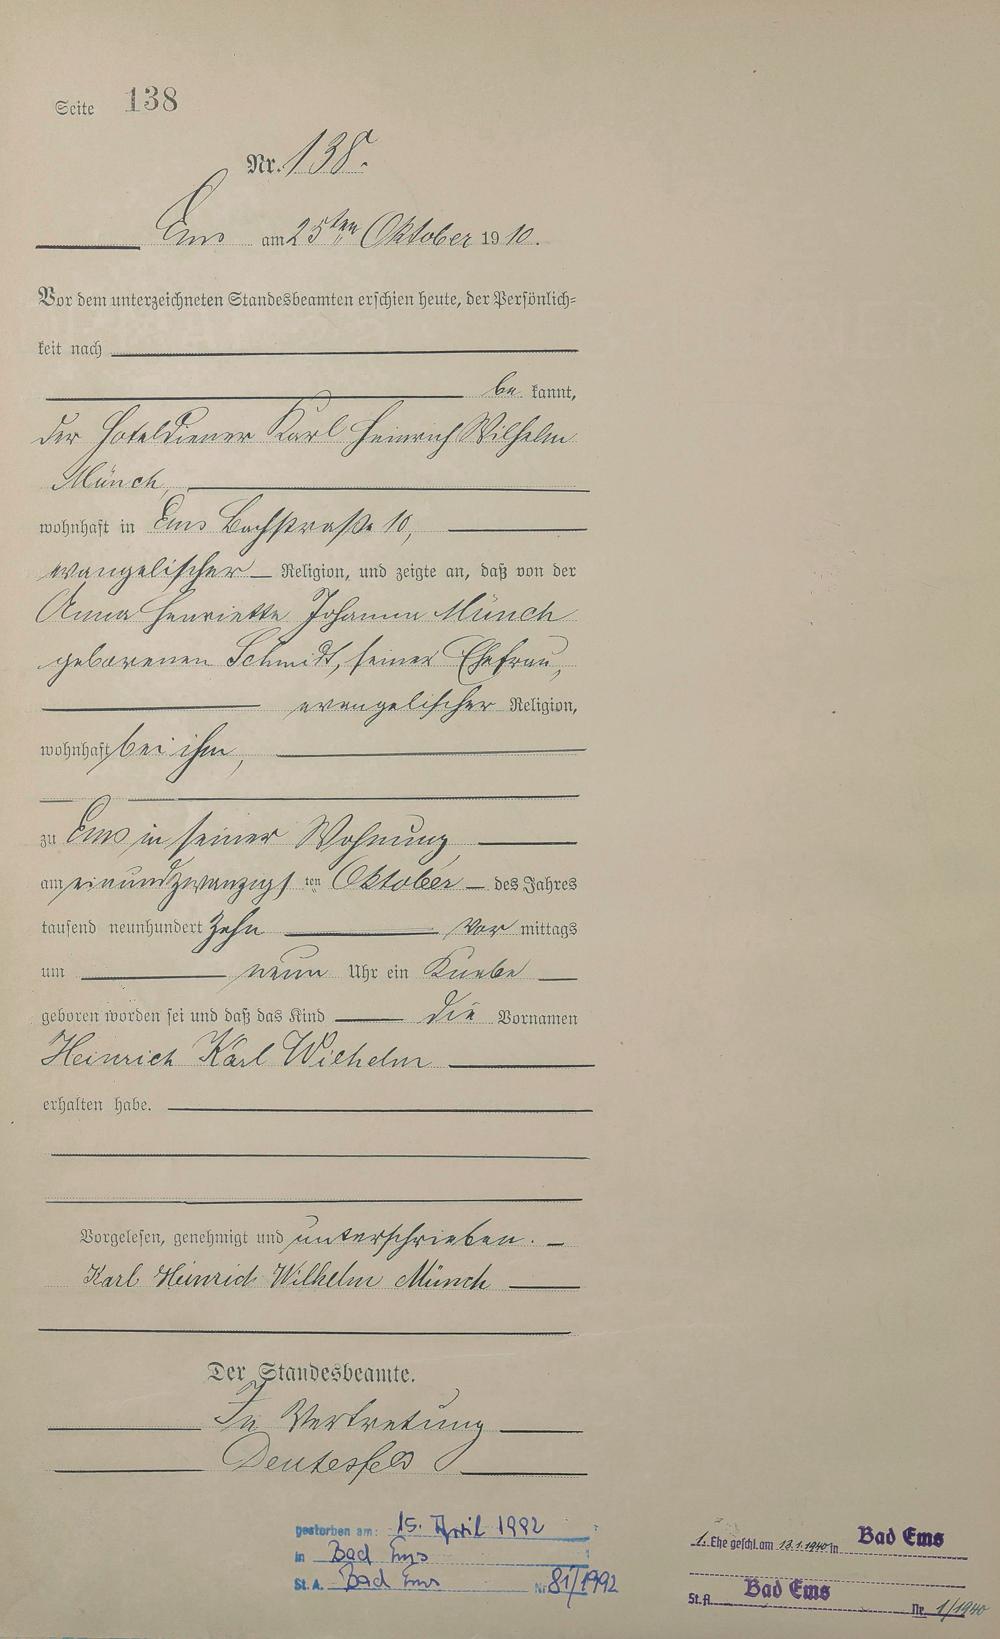 Seite 138
Nr. 138.
Ems am 25ten Oktober 1910.
Vor dem unterzeichneten Standesbeamten erschien heute, der Persönlich-
keit nach
be kannt,
der Hoteldiener Karl Heinrich Wilhelm
Münch,
wohnhaft in Ems Bachstraße 10,
evangelischer Religion, und zeigte an, daß von der
Anna Henriette Johanna Münch
geborenen Schmidt, seiner Ehefrau,
evangelischer Religion,
wohnhaft bei ihm,
zu Ems in seiner Wohnung
am einundzwanzigs ten Oktober des Jahres
tausend neunhundert zehn vor mittags
um neun Uhr ein Knabe
geboren worden sei und daß das Kind die Vornamen
Heinrich Karl Wilhelm
erhalten habe.
Vorgelesen, genehmigt und unterschrieben.
Karl Heinrich Wilhelm Münch
Der Standesbeamte.
In Vertretung
Deutesfeld
gestorben am: 15. April 1992
in Bad Ems
St. A. Bad Ems Nr. 81/1992
1. Ehe geschl. am 13.1.1940 in Bad Ems
St. A. Bad Ems Nr. 1/1940